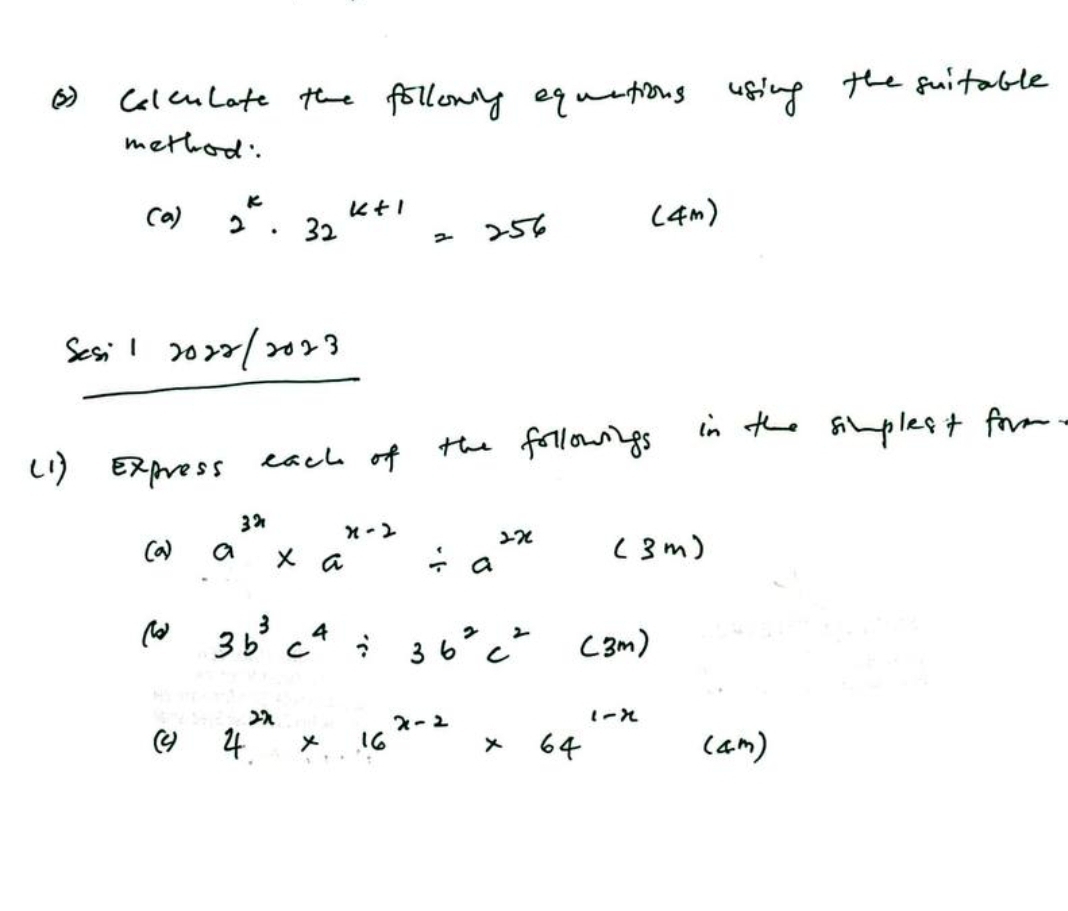 Calculate the following equations using the suitable
method:
(a) 2^k . 32^(k+1) = 256 (4m)
Sesi 1 2022/2023
(1) Express each of the followings in the simplest form.
(a) a^(3x) × a^(x-2) ÷ a^(2x) (3m)
(b) 3b^3 c^4 ÷ 3b^2 c^2 (3m)
(c) 4^(2x) × 16^(x-2) × 64^(1-x) (4m)